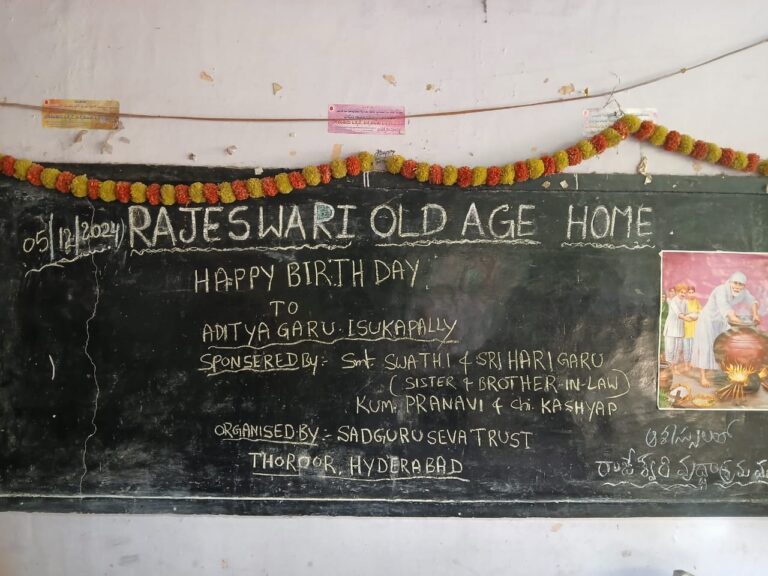 05/12/2024 RAJESWARI OLD AGE HOME.
HAPPY BIRTH DAY
TO
ADITYA GARU. ISUKAPALLY
SPONSERED By:- Smt. SWATHI & SRI HARI GARU
(SISTER & BROTHER-IN-LAW)
KUM. PRANAVI & Chi. KASHYAP
ORGANISED BY:- SADGURU SEVA TRUST
THOROOR, HYDERABAD
ఆశిస్సులతో
రాజేశ్వరి వృద్ధాశ్రమ